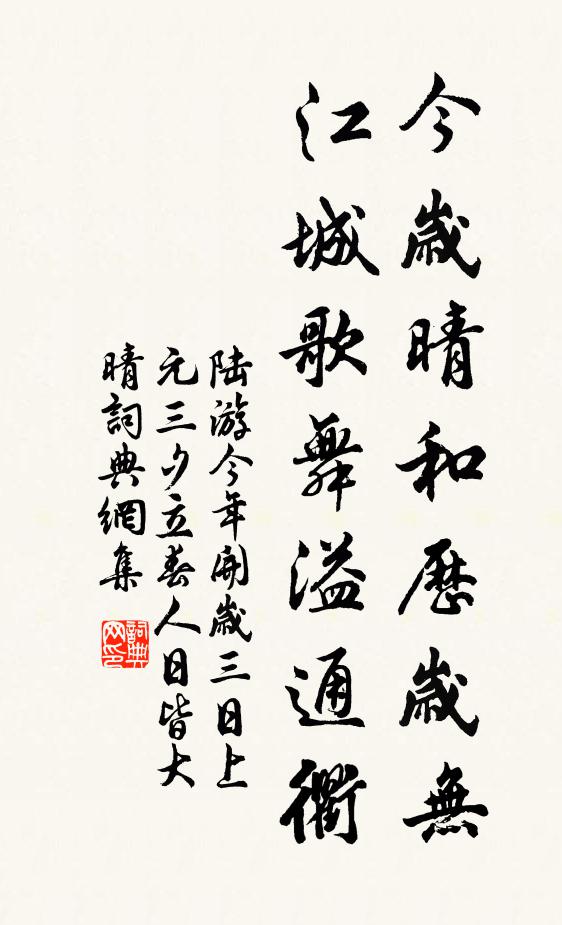 今歲晴和歷歲無
江城歌舞溢通衢
陆游今年開歲三日上
元三夕立春人日皆大
晴詞典網集
詞典网印